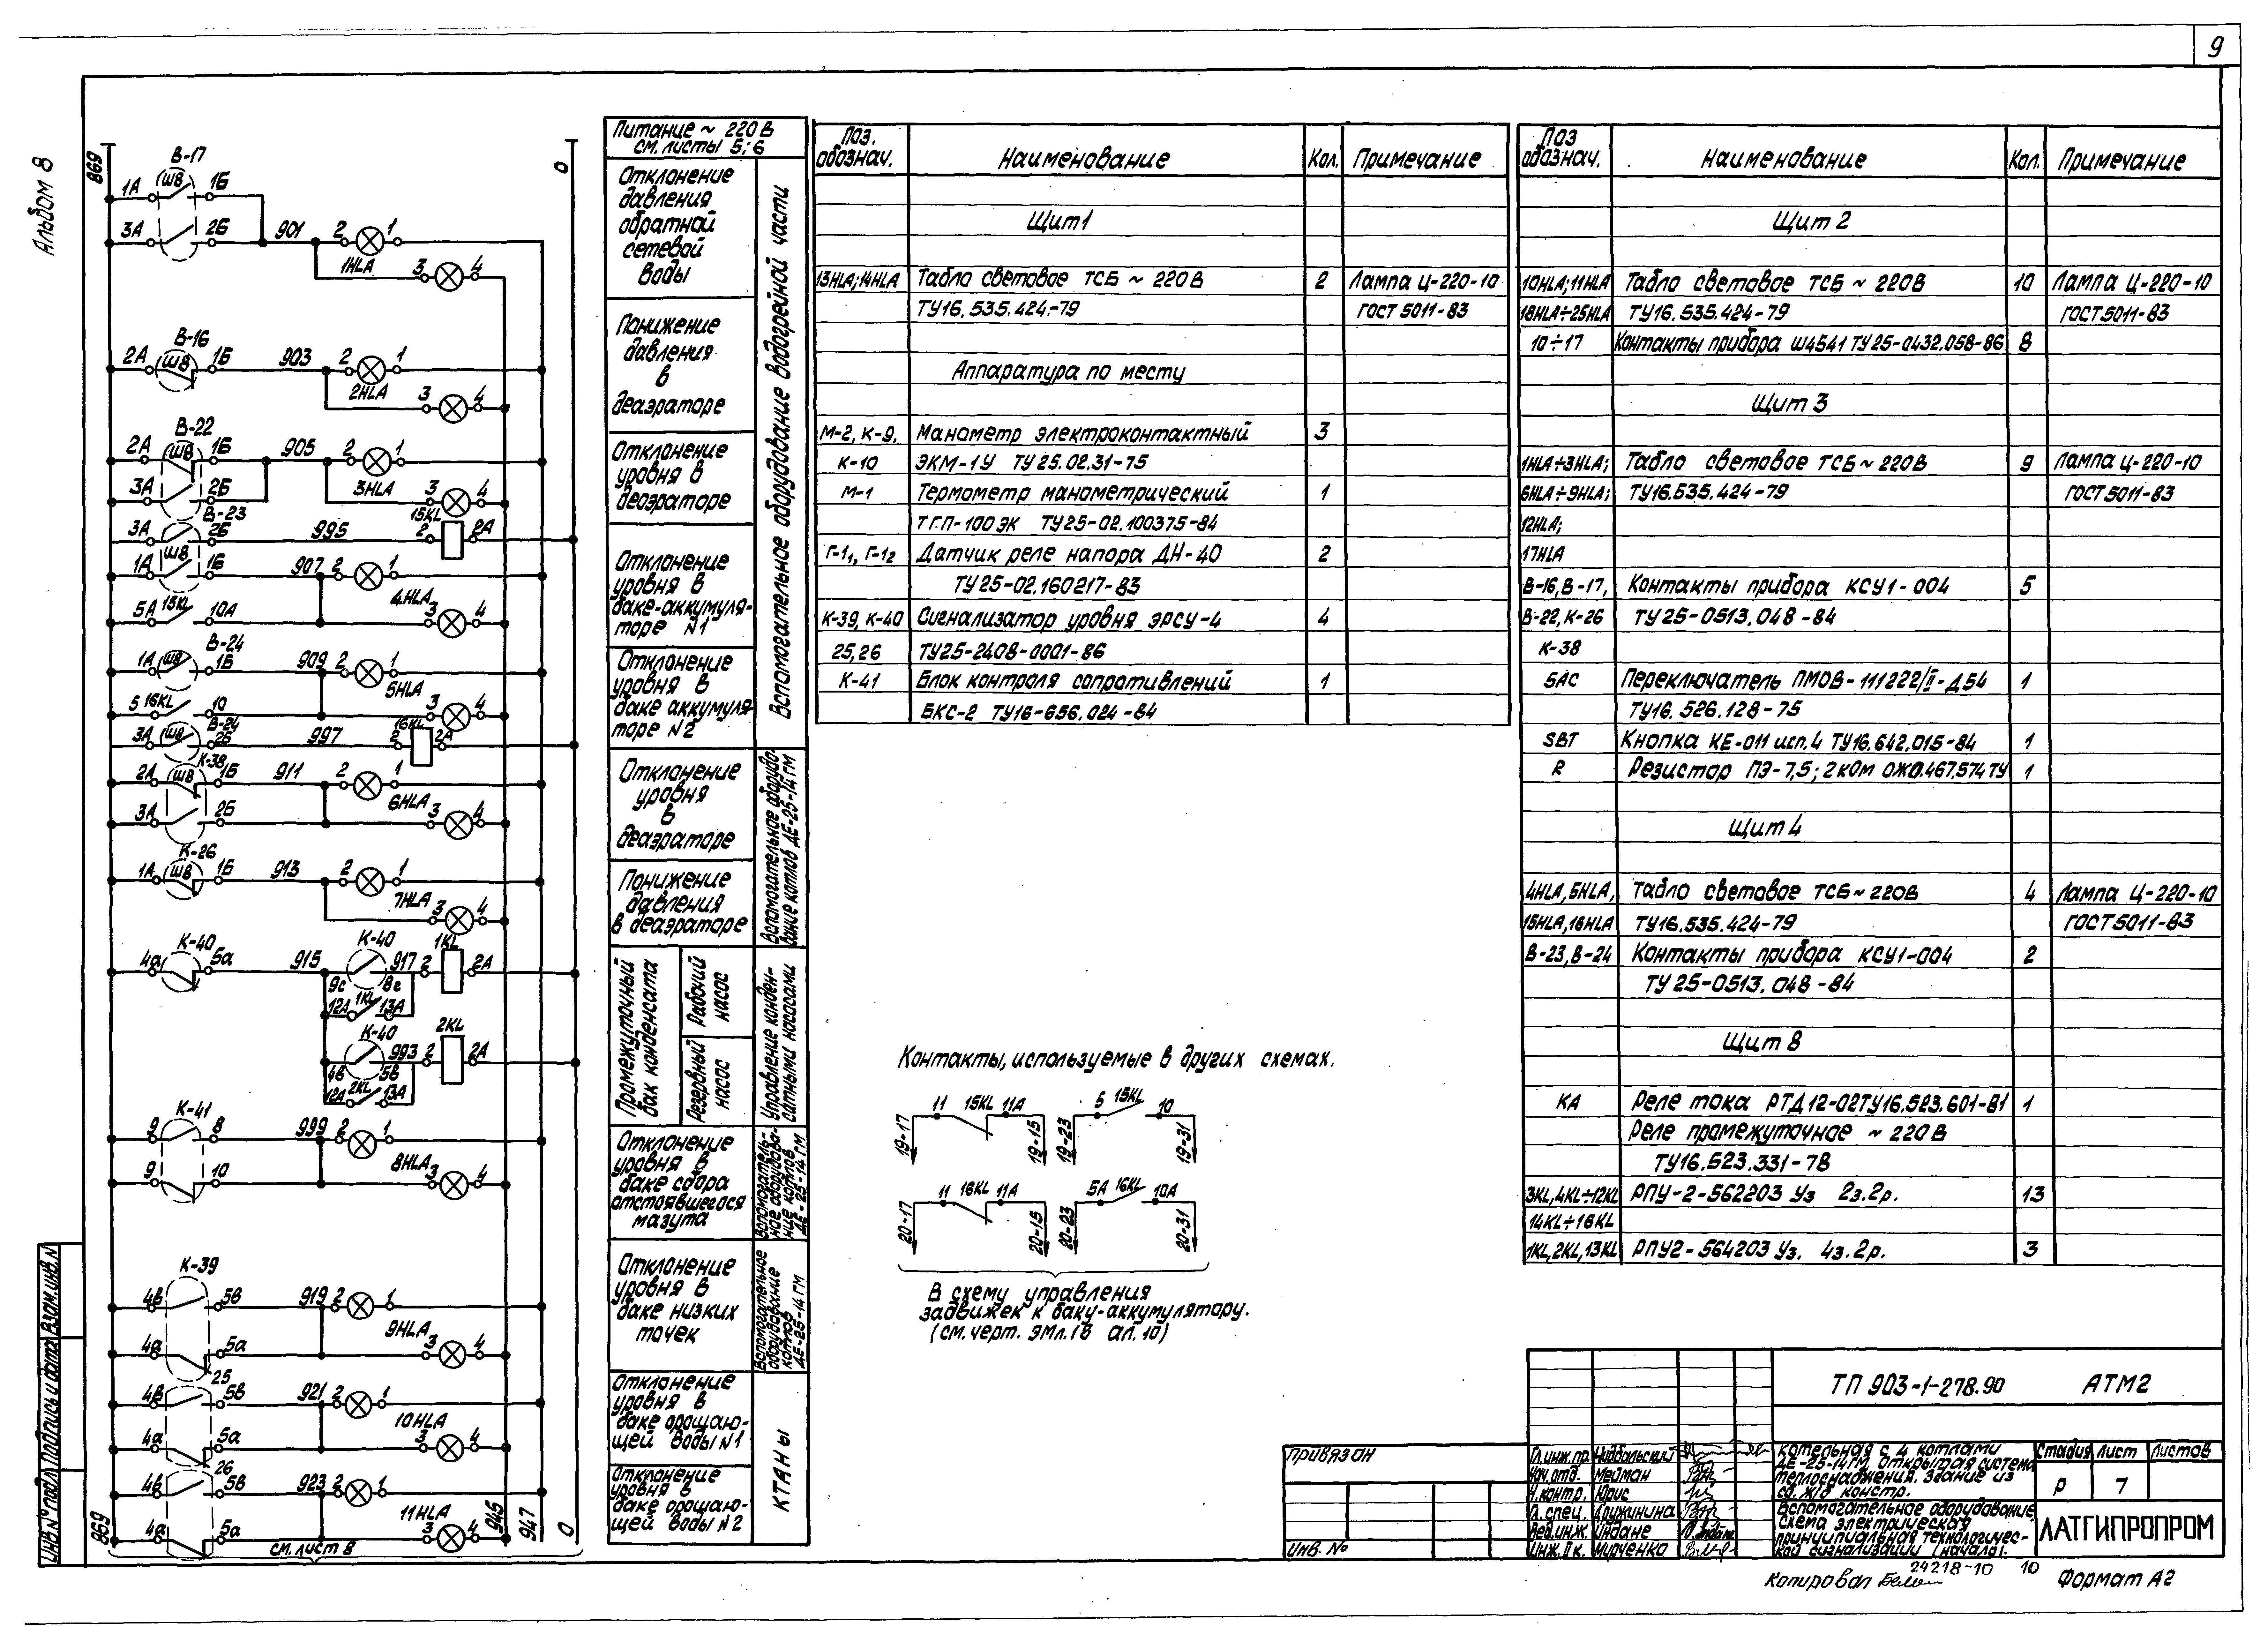 9
Альбом 8
869
0
В-17
1А
ш8
1Б
3А
2Б
901
2
1
1HLA
3
4
В-16
2А
ш8
1Б
903
2
1
2HLA
3
4
В-22
2А
ш8
1Б
905
2
1
3А
2Б
3HLA
3
4
В-23
15KL
3А
2Б
995
2
2А
ш8
1А
1Б
907
2
1
4HLA
5А
15KL
10А
3
4
В-24
1А
ш8
1Б
909
2
1
5HLA
5
16KL
10
3
4
В-24
16KL
3А
ш8
2Б
997
2
2А
К-38
2А
ш8
1Б
911
2
1
6HLA
3А
2Б
3
4
К-26
1А
ш8
1Б
913
2
1
7HLA
3
4
К-40
4а
5а
915
К-40
917
2
1KL
2А
9с
8с
12А
1KL
13А
К-40
993
2
2KL
2А
4в
5в
12А
2KL
13А
К-41
9
8
999
2
1
8HLA
9
10
3
4
К-39
4в
5в
919
2
1
9HLA
4а
5а
3
4
25
4в
5в
921
2
1
10HLA
4а
5а
3
4
26
4в
5в
923
2
1
11HLA
4а
5а
3
4
869
945
947
0
см. лист 8
Питание ~ 220 В
см. листы 5; 6
Отклонение
давления
обратной
сетевой
воды
Понижение
давления
в
деаэраторе
Отклонение
уровня в
деаэраторе
Отклонение
уровня в
баке-аккумуля-
торе №1
Отклонение
уровня в
баке аккумуля-
торе №2
Вспомогательное оборудование водогрейной части
Отклонение
уровня
в
деаэраторе
Понижение
давления
в деаэраторе
Вспомогательное оборудо-
вание котлов ДЕ-25-14 ГМ
Промежуточный
бак конденсата
Рабочий
насос
Резервный
насос
Управление конден-
сатными насосами
Отклонение
уровня в
баке сбора
отстоявшегося
мазута
Вспомогатель-
ное оборудова-
ние котлов
ДЕ-25-14 ГМ
Отклонение
уровня в
баке низких
точек
Вспомогательное
оборудование
котлов
ДЕ-25-14 ГМ
Отклонение
уровня в
баке орошаю-
щей воды №1
Отклонение
уровня в
баке орошаю-
щей воды №2
КТАНы
Поз. обознач.
Наименование
Кол.
Примечание
Щит 1
13HLA; 14HLA Табло световое ТСБ ~ 220 В 2 Лампа Ц-220-10
ТУ16. 535. 424.-79 ГОСТ 5011-83
Аппаратура по месту
М-2, К-9, Манометр электроконтактный 3
К-10 ЭКМ-1У ТУ 25.02.31-75
М-1 Термометр манометрический 1
ТГП-100 ЭК ТУ25-02.100375-84
Г-1₁, Г-1₂ Датчик реле напора ДН-40 2
ТУ 25-02.160217-83
К-39, К-40 Сигнализатор уровня ЭРСУ-4 4
25, 26 ТУ25-2408-0001-86
К-41 Блок контроля сопротивлений 1
БКС-2 ТУ16-656.024-84
Поз обознач.
Наименование
Кол.
Примечание
Щит 2
10HLA; 11HLA Табло световое ТСБ ~ 220В 10 Лампа Ц-220-10
18HLA÷25HLA ТУ16. 535. 424-79 ГОСТ 5011-83
10÷17 Контакты прибора Ш4541 ТУ25-0432.058-86 8
Щит 3
1HLA÷3HLA; Табло световое ТСБ ~ 220 В 9 Лампа Ц-220-10
6HLA÷9HLA; ТУ16.535.424-79 ГОСТ 5011-83
12HLA;
17HLA
В-16, В-17, Контакты прибора КСУ1-004 5
В-22, К-26 ТУ 25-0513.048-84
К-38
SAC Переключатель ПМОВ-111222/II-Д54 1
ТУ16. 526.128-75
SBT Кнопка КЕ-011 исп. 4 ТУ16.642.015-84 1
R Резистор ПЭ-7,5; 2 кОм ОЖ0.467.574 ТУ 1
Щит 4
4HLA, 5HLA, Табло световое ТСБ ~ 220В 4 Лампа Ц-220-10
15HLA, 16HLA ТУ16.535.424-79 ГОСТ 5011-83
В-23, В-24 Контакты прибора КСУ1-004 2
ТУ 25-0513.048-84
Щит 8
КА Реле тока РТД 12-02ТУ16.523.601-81 1
Реле промежуточное ~ 220 В
ТУ16.523.331-78
3KL, 4KL÷12KL РПУ-2-562203 У3 2з. 2р. 13
14KL÷16KL
1KL, 2KL, 13KL РПУ2-564203 У3. 4з. 2р. 3
Контакты, используемые в других схемах.
11 15KL 11А
19-17
19-15
5 15KL 10
19-23
19-31
11 16KL 11А
20-17
20-15
5А 16KL 10А
20-23
20-31
В схему управления
задвижек к баку-аккумулятору.
(см. черт. ЭМл.18 ал. 10)
Инв. № подл. Подпись и дата Взам. инв. №
Привязан
Инв. №
ТП 903-1-278.90 АТМ2
Гл. инж. пр. Нидбальский
Нач. отд. Мейман
Н. контр. Юрис
Гл. спец. Дружинина
Вед. инж. Индане
Инж. II к. Мурченко
Котельная с 4 котлами
ДЕ-25-14 ГМ. Открытая система
теплоснабжения. Здание из
сб. ж/б констр.
Стадия Лист Листов
Р 7
Вспомогательное оборудование
Схема электрическая
принципиальная технологичес-
кой сигнализации (начало).
ЛАТГИПРОПРОМ
24218-10 10
Копировал
Формат А2